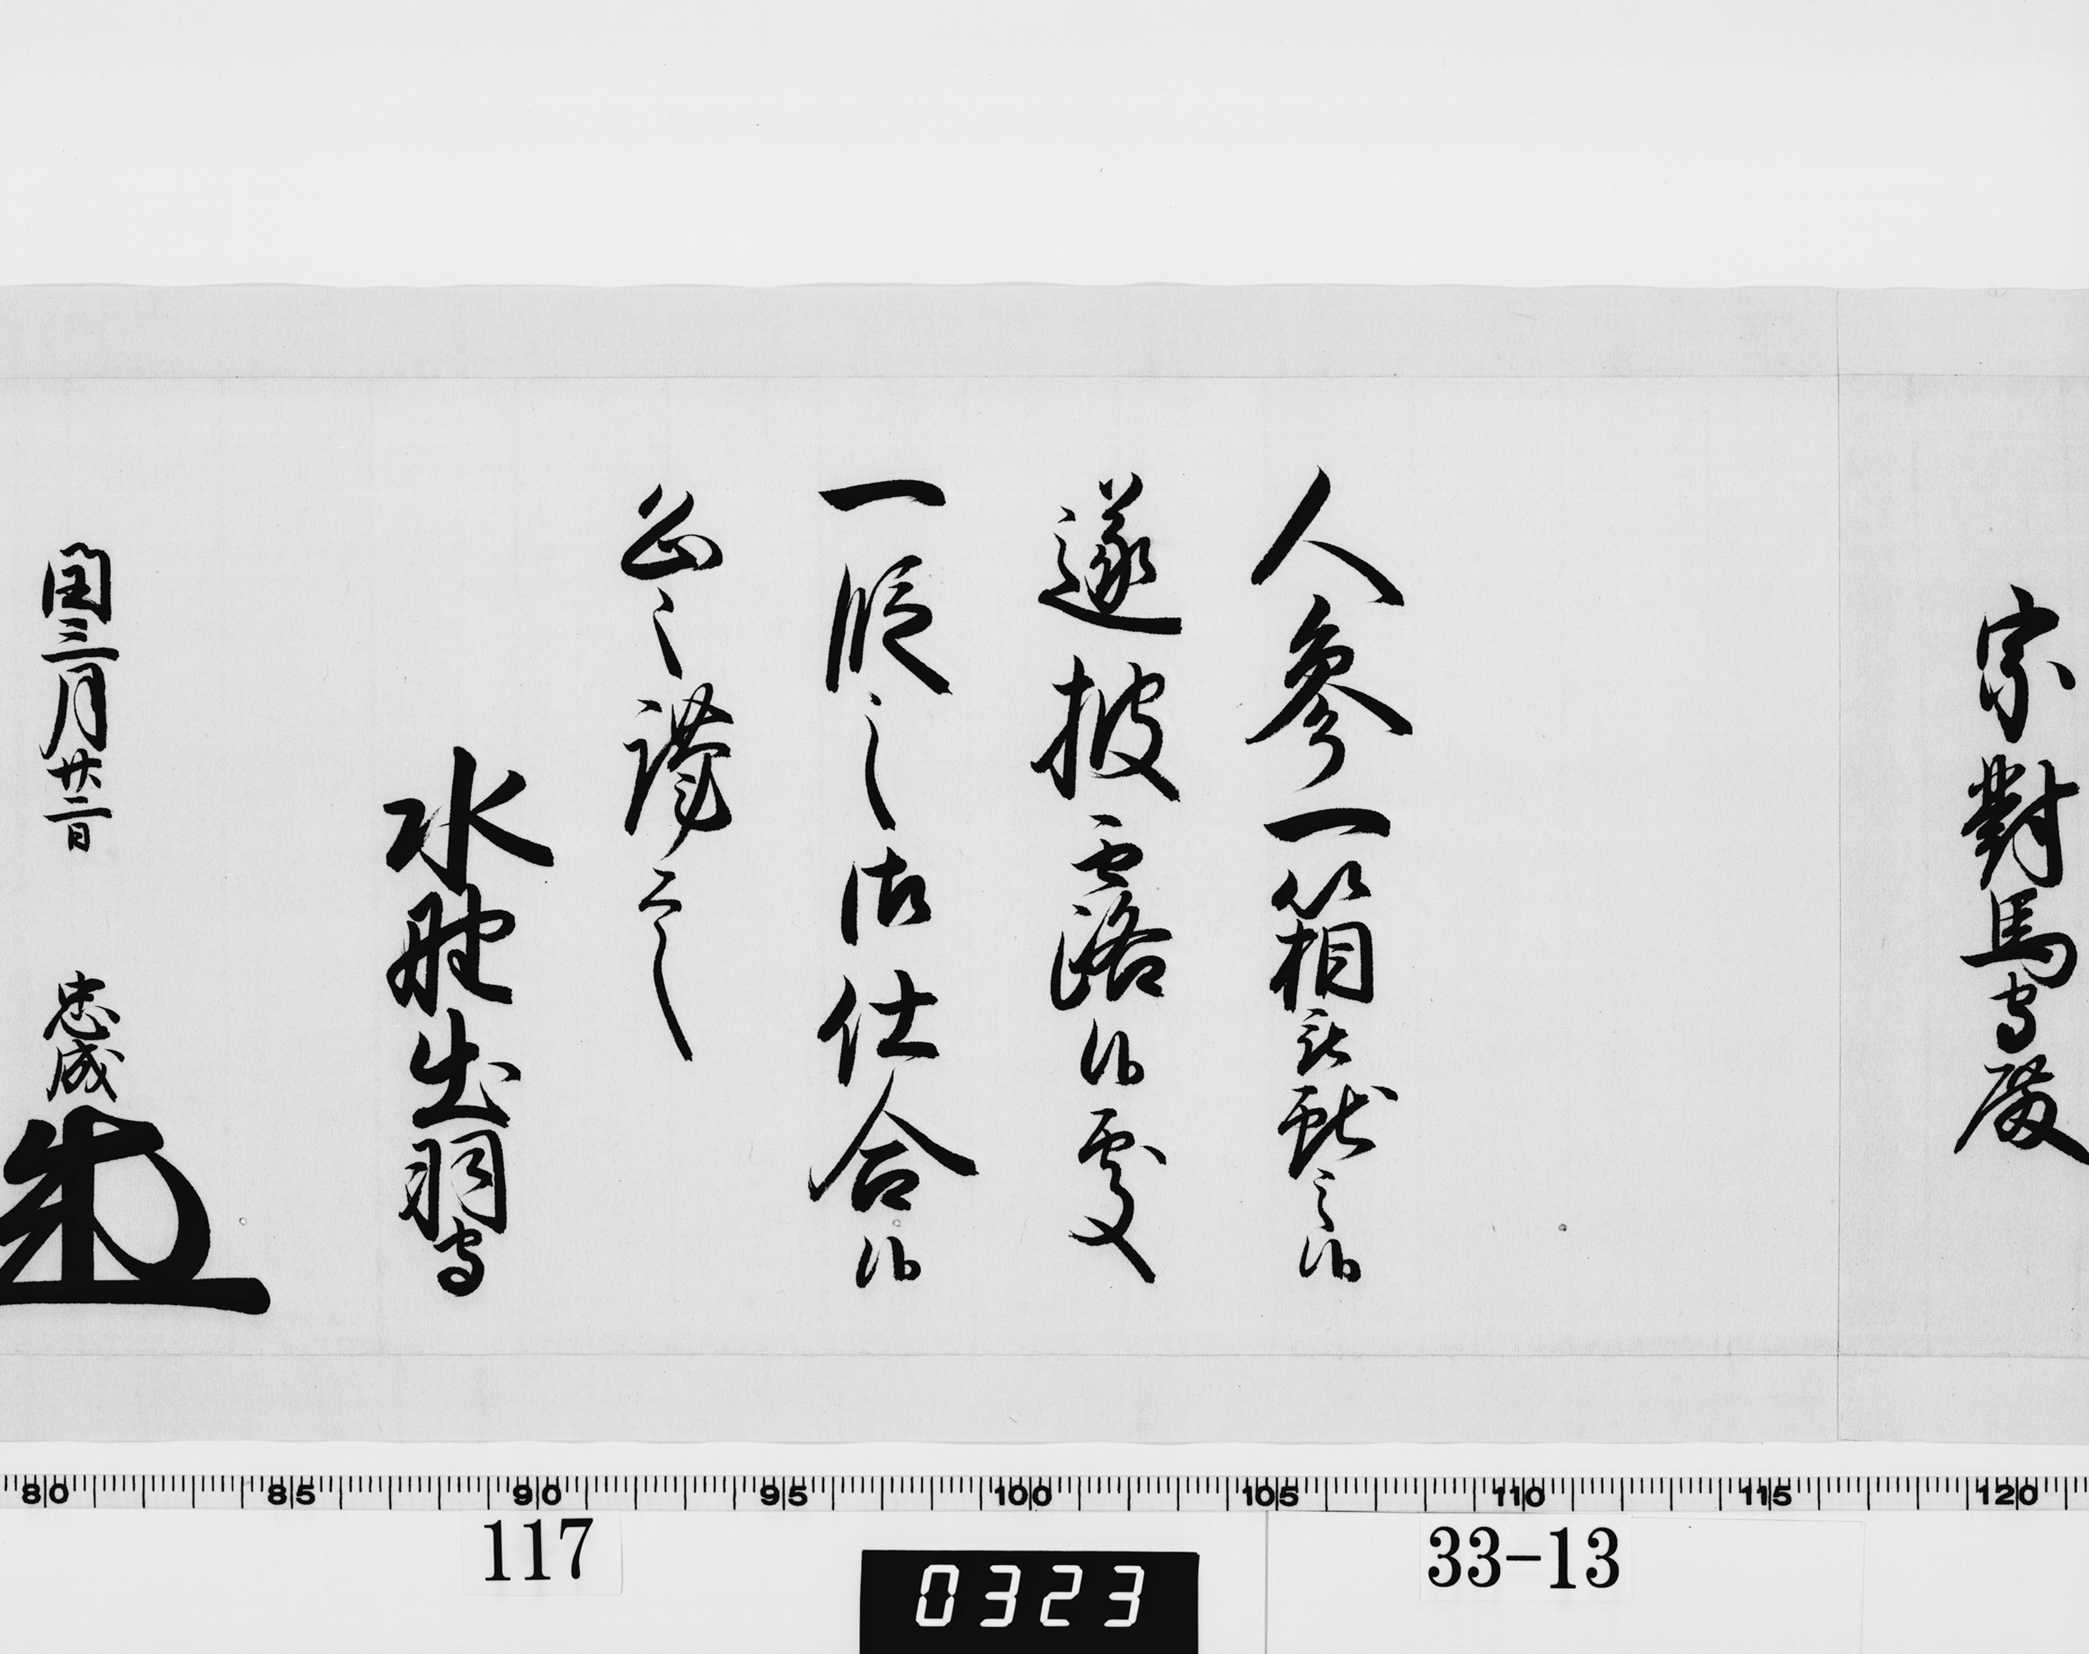 宗對馬守殿
人參一箱被獻之候
遂披露候處
一段之御仕合候
恐々謹言
水野出羽守
閏三月廿二日
忠成
80 85 90 95 100 105 110 115 120
117
0323
33-13